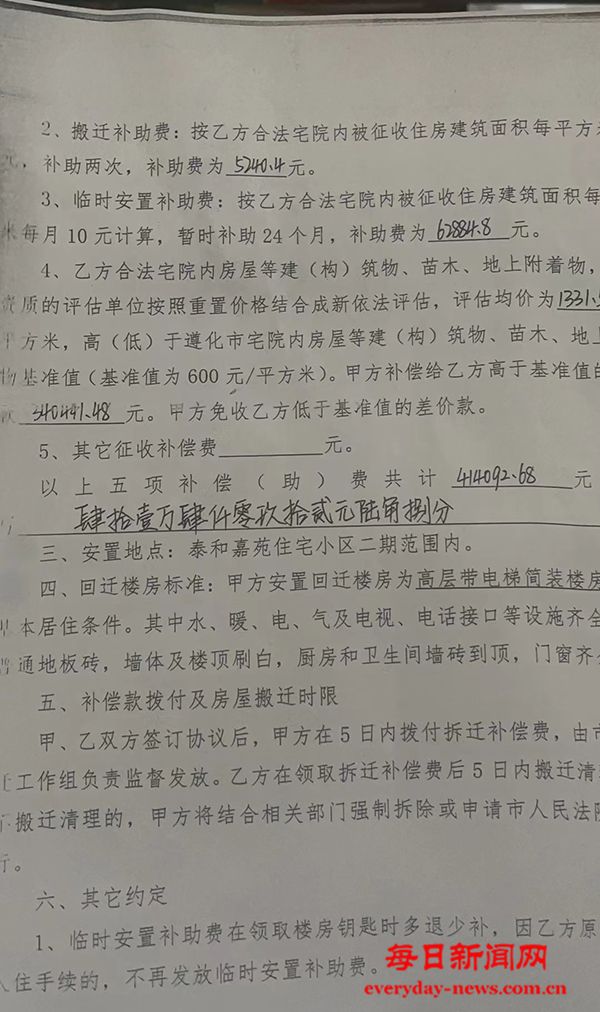 2、搬迁补助费：按乙方合法宅院内被征收住房建筑面积每平方米
，补助两次，补助费为 5240.4 元。
3、临时安置补助费：按乙方合法宅院内被征收住房建筑面积每
米每月 10 元计算，暂时补助 24 个月，补助费为 62884.8 元。
4、乙方合法宅院内房屋等建（构）筑物、苗木、地上附着物，
资质的评估单位按照重置价格结合成新依法评估，评估均价为 1331.
平方米，高（低）于遵化市宅院内房屋等建（构）筑物、苗木、地上
物基准值（基准值为 600 元/平方米）。甲方补偿给乙方高于基准值的
元。甲方免收乙方低于基准值的差价款。
5、其它征收补偿费 元。
以上五项补偿（助）费共计 414092.68 元
肆拾壹万肆仟零玖拾贰元陆角捌分
三、安置地点：泰和嘉苑住宅小区二期范围内。
四、回迁楼房标准：甲方安置回迁楼房为高层带电梯简装楼房
本居住条件。其中水、暖、电、气及电视、电话接口等设施齐全
普通地板砖，墙体及楼顶刷白，厨房和卫生间墙砖到顶，门窗齐
五、补偿款拨付及房屋搬迁时限
甲、乙双方签订协议后，甲方在 5 日内拨付拆迁补偿费，由市
迁工作组负责监督发放。乙方在领取拆迁补偿费后 5 日内搬迁清
不搬迁清理的，甲方将结合相关部门强制拆除或申请市人民法院
行。
六、其它约定
1、临时安置补助费在领取楼房钥匙时多退少补，因乙方原
入住手续的，不再发放临时安置补助费。
每日新闻网
everyday-news.com.cn